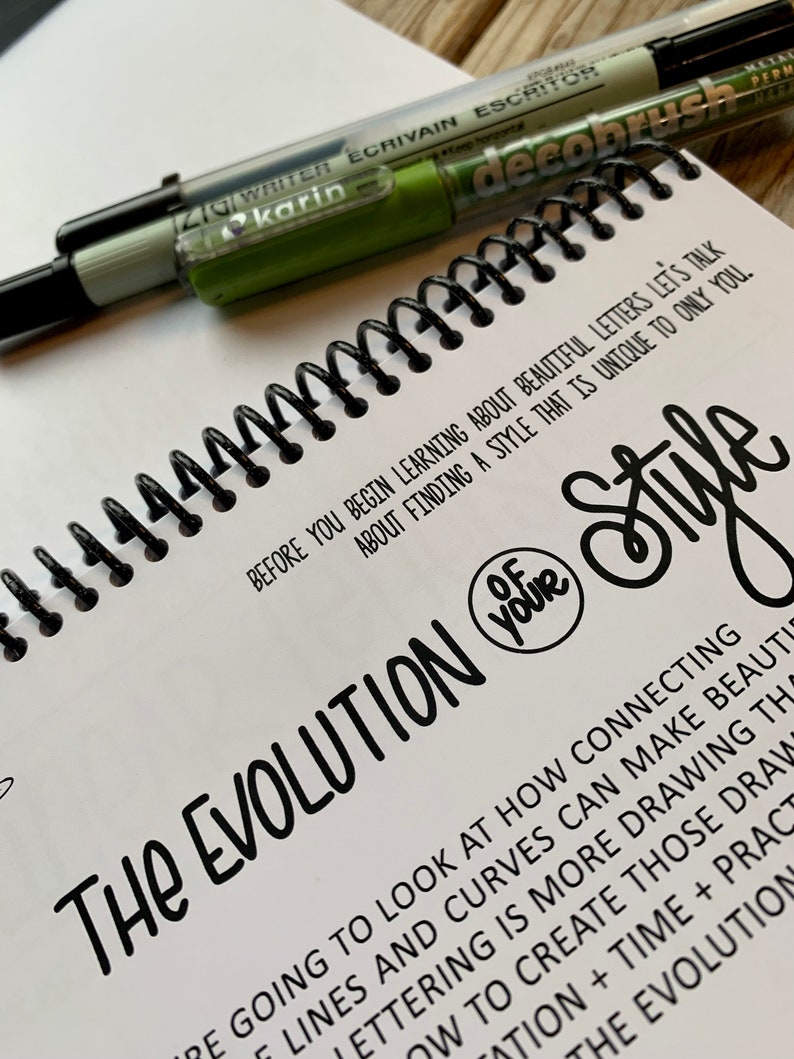 ZIG WRITER ECRIVAIN ESCRITOR
Keep horizontal
karin decobrush
METAL
PERM
BEFORE YOU BEGIN LEARNING ABOUT BEAUTIFUL LETTERS LET'S TALK
ABOUT FINDING A STYLE THAT IS UNIQUE TO ONLY YOU.
THe EVOLUTION OF YOUR Style
RE GOING TO LOOK AT HOW CONNECTING
E LINES AND CURVES CAN MAKE BEAUTIF
LETTERING IS MORE DRAWING THA
OW TO CREATE THOSE DRAW
TATION + TIME + PRACT
THE EVOLUTION